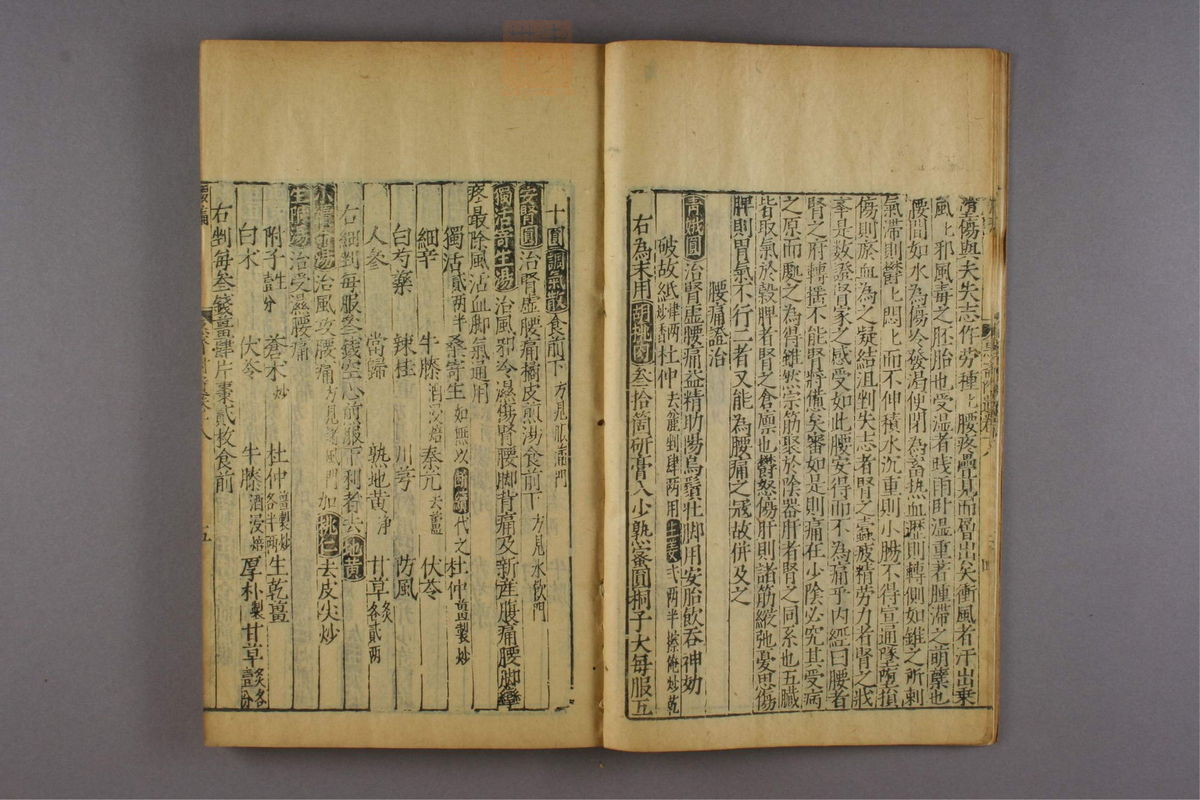 墮傷與夫失志作劳種〻腰疼疊見而層出矣衝風者汗出乗
風〻邪風毒之胚胎也受湿者践雨卧温重著腫滞之萌蘖也
腰間如水為傷冷發渇便閉為畜热血瀝則轉側如錐之所刺
氣滞則鬱〻悶〻而不伸積水沉重則小腸不得宣通墜堕損
傷則瘀血為之凝結沮判失志者腎之蠧疲精劳力者腎之戕
辜是数證腎家之感受如此腰安得而不為痛乎内經曰腰者
腎之府轉摇不能腎將憊矣審如是則痛在少陰必究其受病
之原而處之為得雖然宗筋聚於陰器肝者腎之同系也五臟
皆取氣於榖脾者腎之倉廪也鬱怒傷肝則諸筋縱弛憂思傷
脾則胃氣不行二者又能為腰痛之冦故併及之
腰痛證治
青娥圓 治腎虚腰痛益精助陽烏鬚壮脚用安胎飲吞神効
破故紙肆两炒香杜仲去麄剉肆两用生薑弍两半擦淹炒乾
右為末用胡桃肉叁拾箇研膏入少熟蜜圓桐子大每服五
十圓調氣散食前下方見脹滿門
安腎圓 治腎虚腰痛橘皮煎湯食前下方見水飲門
獨活寄生湯 治風邪冷濕傷腎腰脚背痛及新産腹痛腰脚
疼最除風活血脚氣通用
獨活貳两半桑寄生如無以續断代之杜仲薑製炒
細辛 牛膝酒浸焙秦艽去蘆 伏苓
白芍藥 辣桂 川芎 防風
人参 當歸 熟地黄净 甘草炙各貳两
右細剉每服叁錢空心前服下利者去地黄
小續命湯治風攻腰痛方見諸風門加桃仁去皮尖炒
生附湯治受濕腰痛
附子生壹分 蒼朮炒 杜仲薑製炒各半两生乾薑
白朮 伏苓 牛膝酒浸焙厚朴製甘草炙各壹分
右剉每叁錢薑肆片棗貳枚食前